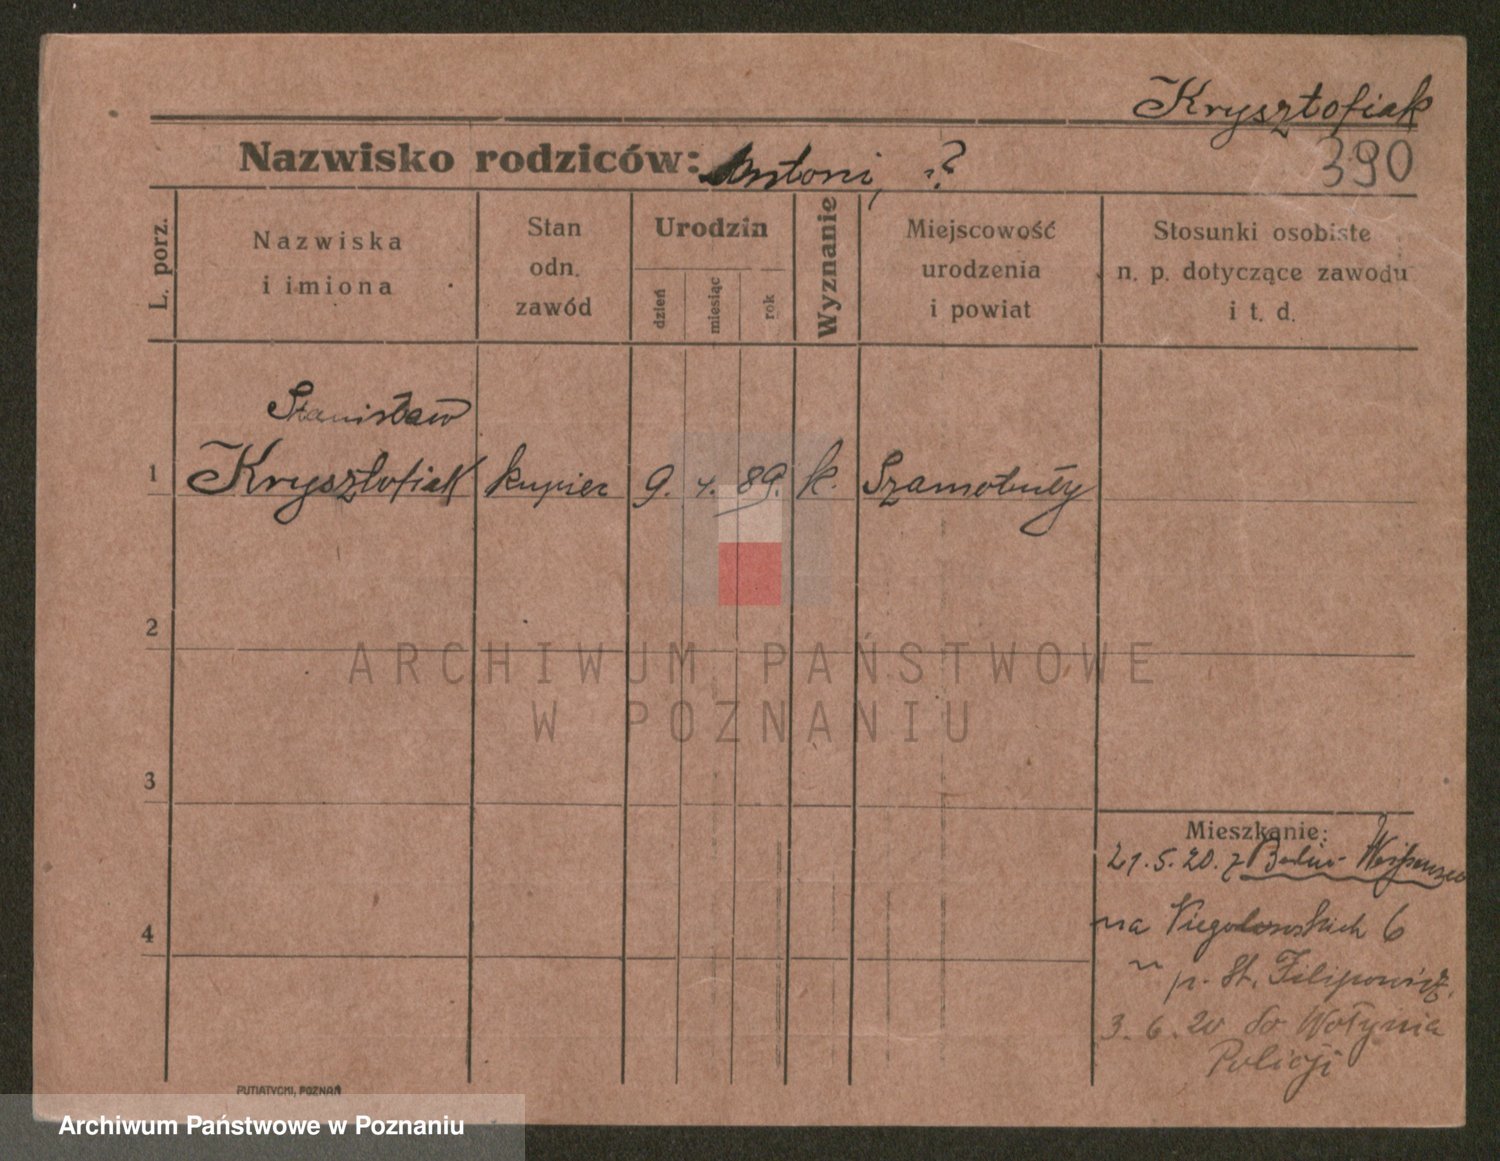 Krysztofiak
390
Nazwisko rodziców: Antoni, ?
L. porz.
Nazwiska
i imiona
Stan
odn.
zawód
Urodzin
dzień
miesiąc
rok
Wyznanie
Miejscowość
urodzenia
i powiat
Stosunki osobiste
n. p. dotyczące zawodu
i t. d.
Stanisław
1 Krysztofiak kupiec 9. 4. 89. k. Szamotuły
2
ARCHIWUM PAŃSTWOWE
W POZNANIU
3
Mieszkanie:
21.5.20. z Berlin-Weißensee
4
na Niegolewskich 6
p. St. Filipowicz.
3.6.20 do Wołynia
Policji
PUTIATYCKI, POZNAŃ
Archiwum Państwowe w Poznaniu